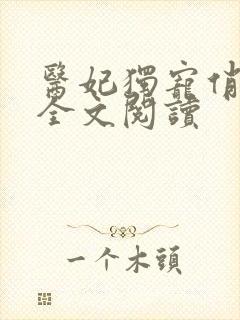 醫妃獨寵俏
全文閱讀
一个木頭